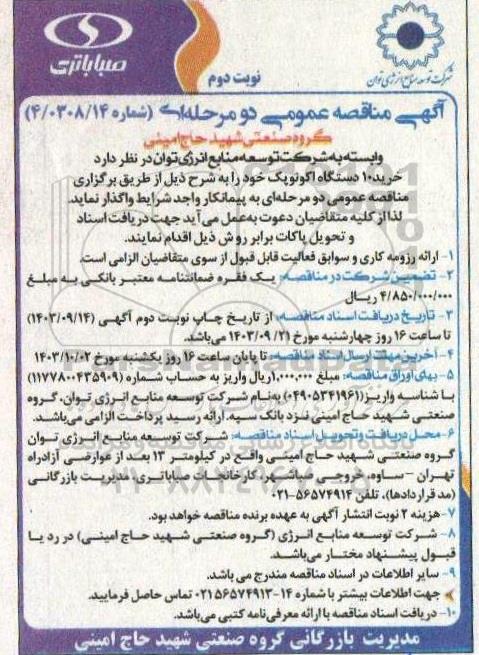 صباباتری
شرکت توسعه منابع انرژی توان
نوبت دوم
آگهی مناقصه عمومی دو مرحله‌ای (شماره ۴/۰۳۰۸/۱۴)
گروه صنعتی شهید حاج امینی
وابسته به شرکت توسعه منابع انرژی توان در نظر دارد
خرید ۱۰ دستگاه اکونوپک خود را به شرح ذیل از طریق برگزاری
مناقصه عمومی دو مرحله‌ای به پیمانکار واجد شرایط واگذار نماید.
لذا از کلیه متقاضیان دعوت به‌عمل می‌آید جهت دریافت اسناد
و تحویل پاکات برابر روش ذیل اقدام نمایند.
۱- ارائه رزومه کاری و سوابق فعالیت قابل قبول از سوی متقاضیان الزامی است.
۲- تضمین شرکت در مناقصه: یک فقره ضمانتنامه معتبر بانکی به مبلغ
۴/۸۵۰/۰۰۰/۰۰۰ ریال
۳- تاریخ دریافت اسناد مناقصه: از تاریخ چاپ نوبت دوم آگهی (۱۴۰۳/۰۹/۱۴)
تا ساعت ۱۶ روز چهارشنبه مورخ ۱۴۰۳/۰۹/۲۱ می‌باشد.
۴- آخرین مهلت ارسال اسناد مناقصه: تا پایان ساعت ۱۶ روز یکشنبه مورخ ۱۴۰۳/۱۰/۰۲
۵- بهای اوراق مناقصه: مبلغ ۱,۰۰۰,۰۰۰ ریال واریز به حساب شماره (۱۱۷۷۸۰۰۴۳۵۹۰۹)
با شناسه واریز (۰۴۹۰۵۳۴۱۹۶۱) به‌نام شرکت توسعه منابع انرژی توان، گروه
صنعتی شهید حاج امینی نزد بانک سپه. ارائه رسید پرداخت الزامی می‌باشد.
۶- محل دریافت و تحویل اسناد مناقصه: شرکت توسعه منابع انرژی توان
گروه صنعتی شهید حاج امینی واقع در کیلومتر ۱۳ بعد از عوارضی آزادراه
تهران - ساوه، خروجی صباشهر، کارخانجات صباباتری، مدیریت بازرگانی
(مدقراردادها)، تلفن ۵۶۵۷۴۹۱۴-۰۲۱
۷- هزینه ۲ نوبت انتشار آگهی به عهده برنده مناقصه خواهد بود.
۸- شرکت توسعه منابع انرژی (گروه صنعتی شهید حاج امینی) در رد یا
قبول پیشنهاد مختار می‌باشد.
۹- سایر اطلاعات در اسناد مناقصه مندرج می باشد.
جهت اطلاعات بیشتر با شماره ۱۴-۰۲۱۵۶۵۷۴۹۱۳ تماس حاصل فرمایید.
۱۰- دریافت اسناد مناقصه با ارائه معرفی‌نامه کتبی می‌باشد.
مدیریت بازرگانی گروه صنعتی شهید حاج امینی